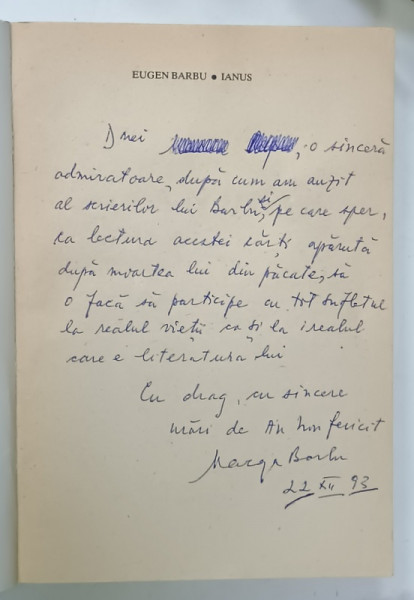 EUGEN BARBU ● IANUS
Dnei , o sinceră
admiratoare, după cum am auzit
al scrierilor lui Barbu, și pe care sper,
ca lectura acestei cărți, apărută
după moartea lui din păcate, să
o facă să participe cu tot sufletul
la realul vieții ca și la irealul
care e literatura lui
Cu drag, cu sincere
urări de An Nou fericit
Marga Barbu
22 XII 93